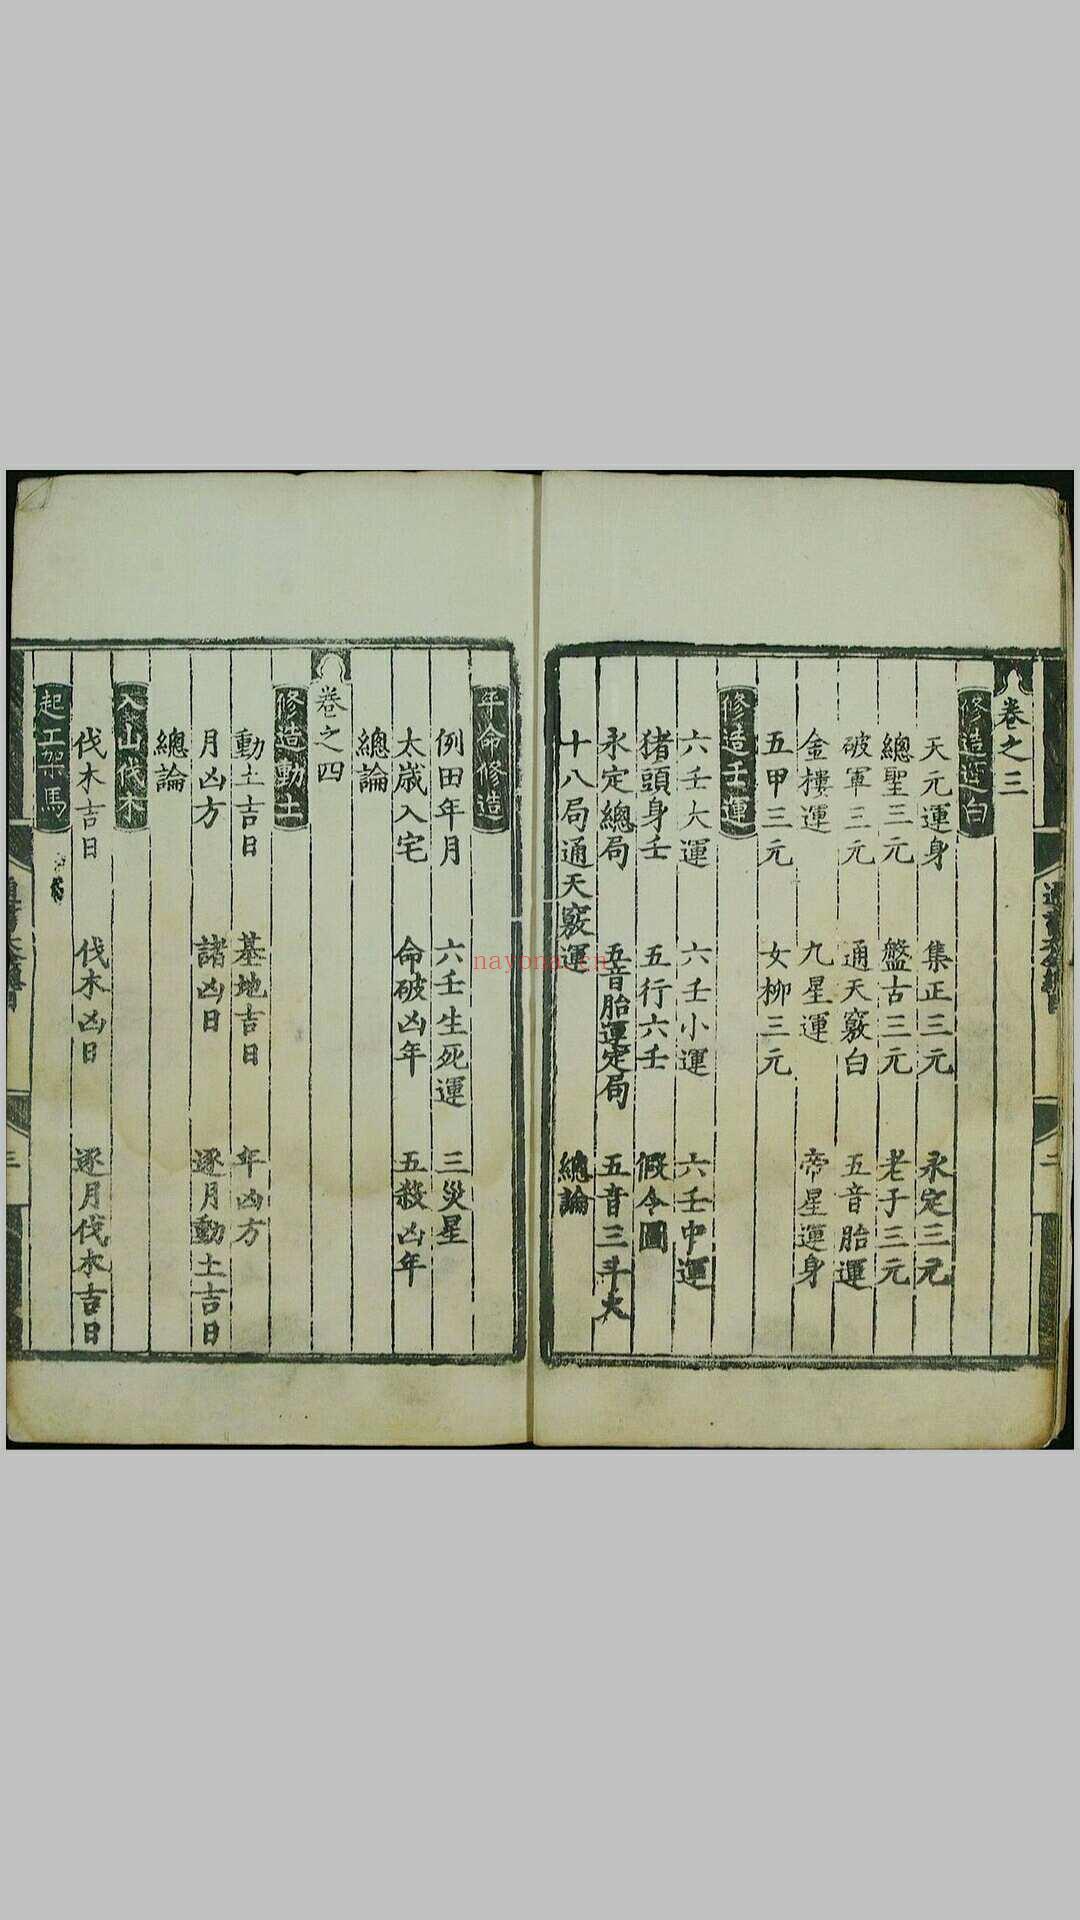 卷之三
修造運白
天元運身 集正三元 永定三元
總聖三元 盤古三元 老子三元
破軍三元 通天竅白 五音胎運
金樓運 九星運 帝星運身
五甲三元 女柳三元
修造壬運
六壬大運 六壬小運 六壬中運
猪頭身壬 五行六壬 假令圖
永定總局 五音胎運定局 五音三斗大
十八局通天竅運 總論
年命修造
例田年月 六壬生死運 三災星
太歲入宅 命破凶年 五殺凶年
總論
卷之四
修造動土
動土吉日 基地吉日 年凶方
月凶方 諸凶日 逐月動土吉日
總論
入山伐木
伐木吉日 伐木凶日 逐月伐木吉日
起工架馬
二
三
nayona.cn